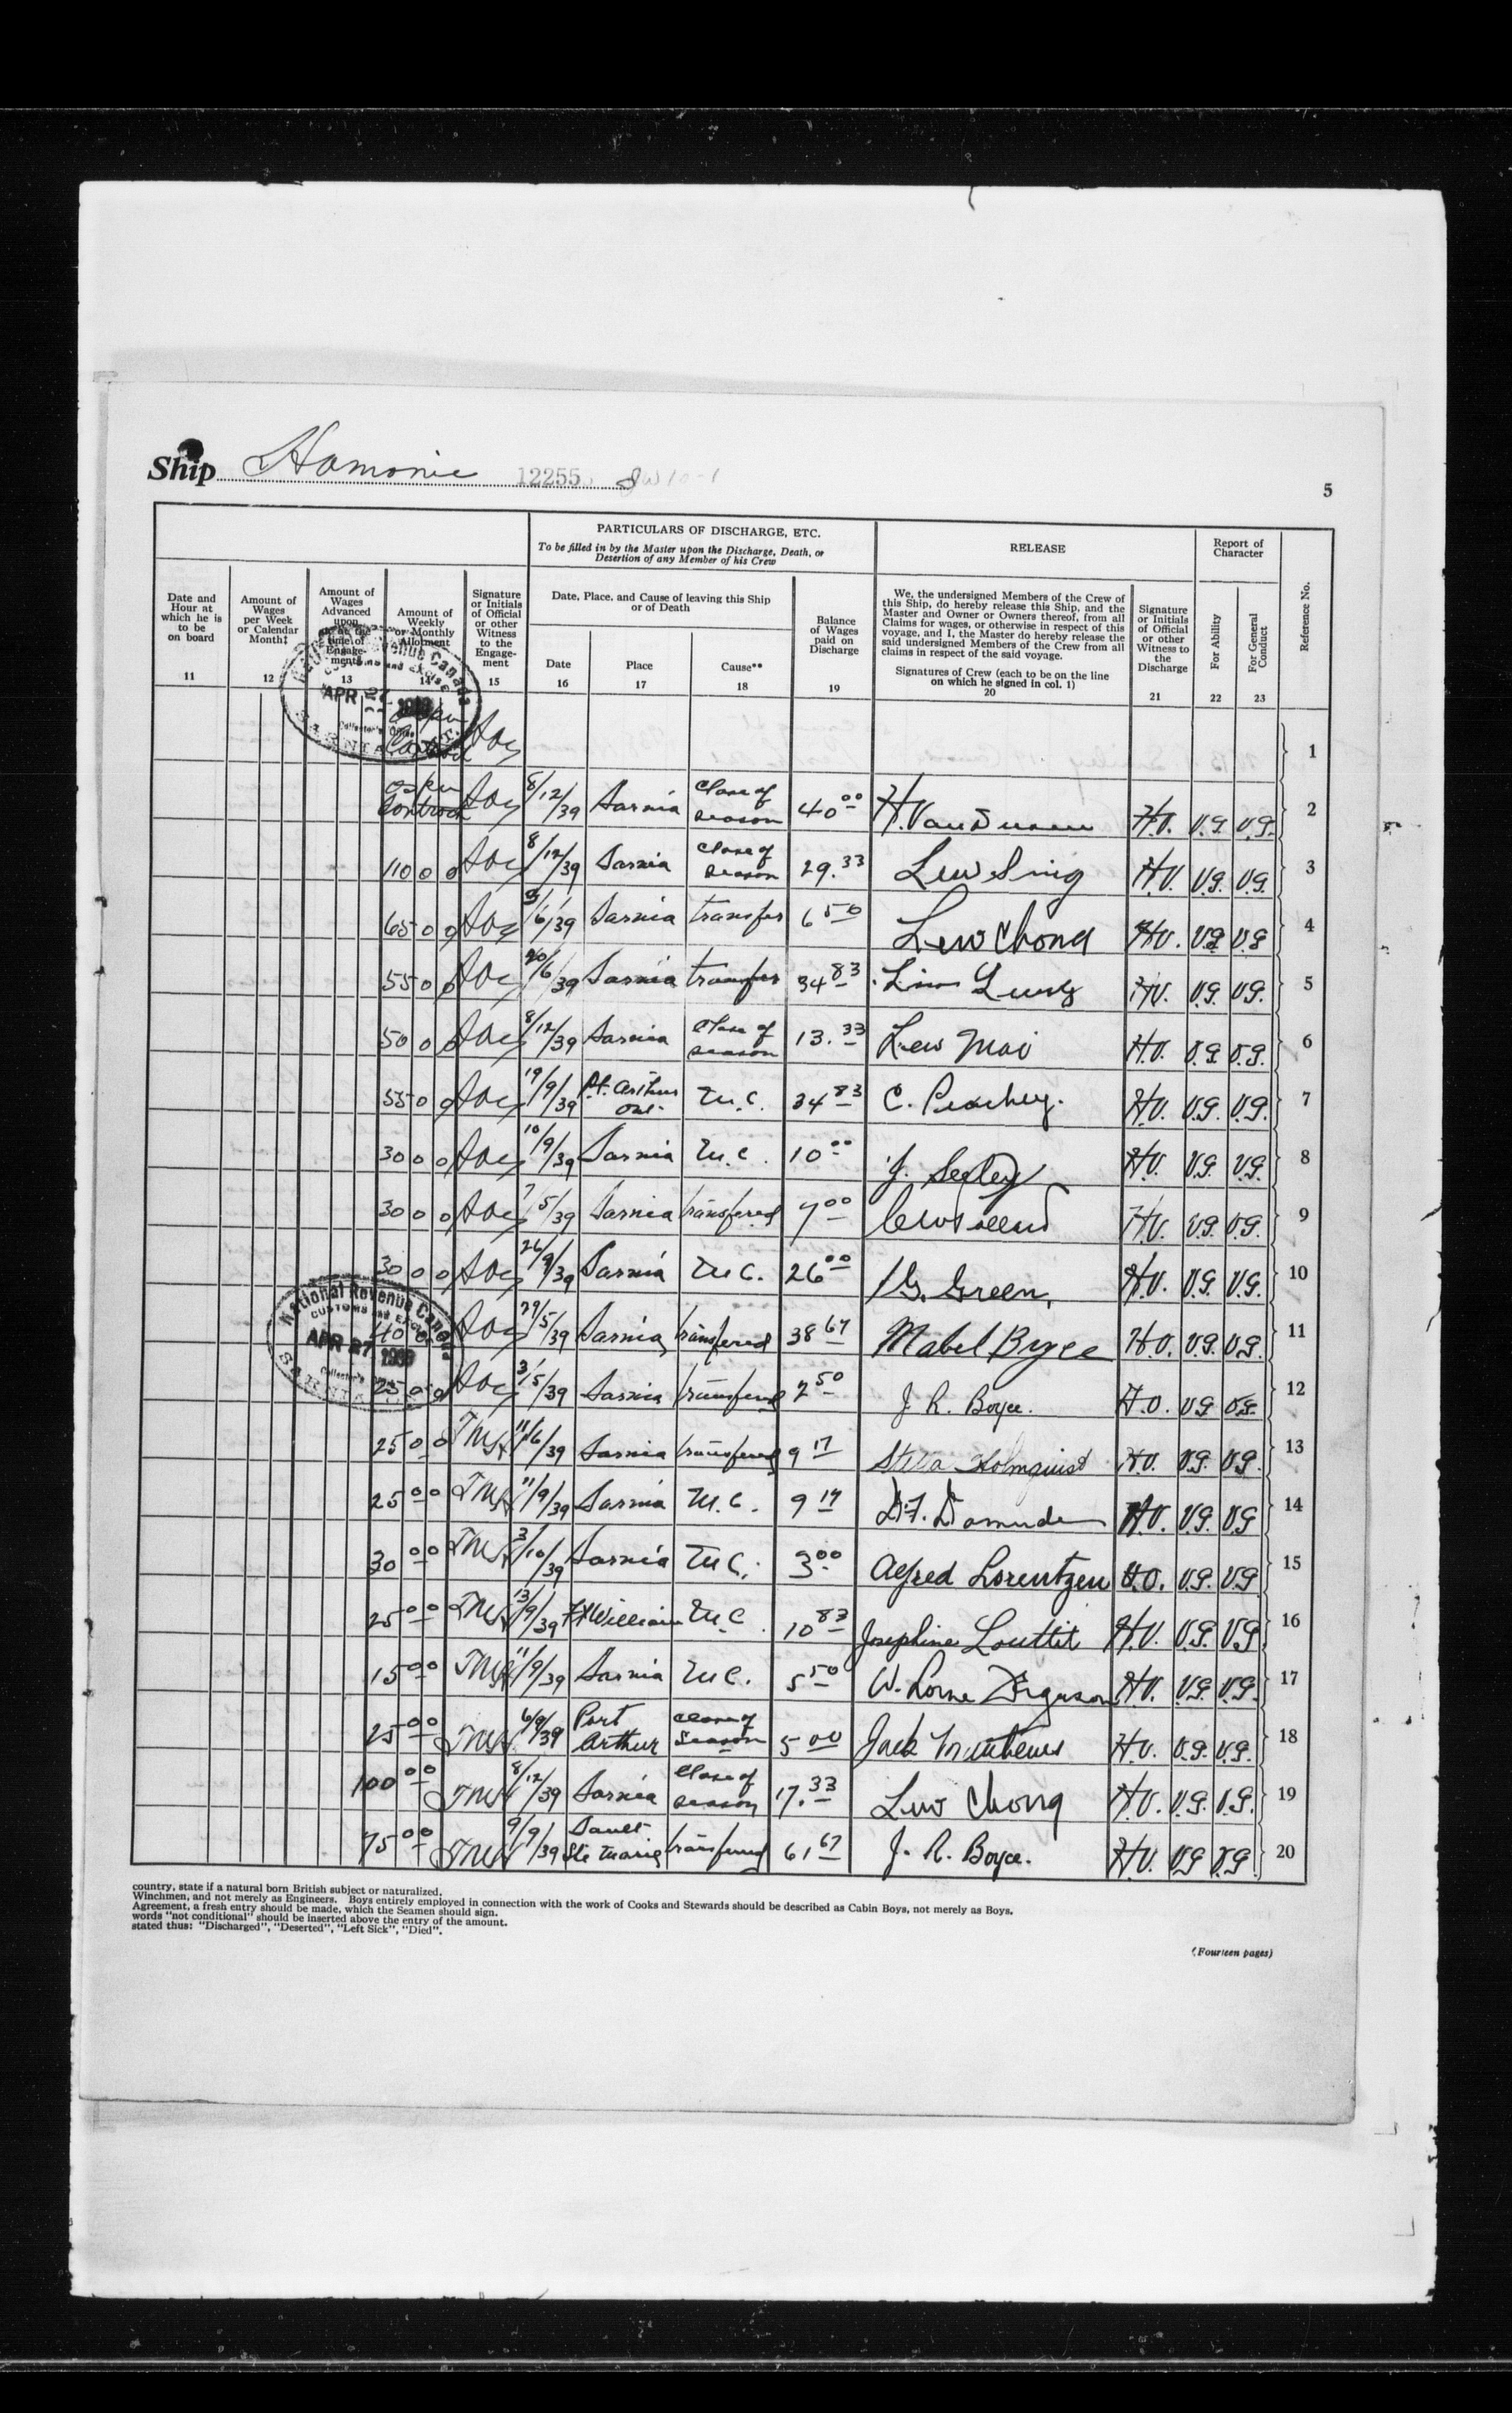 Ship Hamonic 12255
5
PARTICULARS OF DISCHARGE, ETC.
To be filled in by the Master upon the Discharge, Death, or
Desertion of any Member of his Crew
RELEASE
Report of
Character
Reference No.
Date and
Hour at
which he is
to be
on board
11
Amount of
Wages
per Week
or Calendar
Month‡
12
Amount of
Wages
Advanced
upon
time of
Engage-
ment
13
Amount of
Weekly
or Monthly
Allotment
14
Signature
or Initials
of Official
or other
Witness
to the
Engage-
ment
15
Date, Place, and Cause of leaving this Ship
or of Death
Date
16
Place
17
Cause**
18
Balance
of Wages
paid on
Discharge
19
We, the undersigned Members of the Crew of
this Ship, do hereby release this Ship, and the
Master and Owner or Owners thereof, from all
Claims for wages, or otherwise in respect of this
voyage, and I, the Master do hereby release the
said undersigned Members of the Crew from all
claims in respect of the said voyage.
Signatures of Crew (each to be on the line
on which he signed in col. 1)
20
Signature
or Initials
of Official
or other
Witness to
the
Discharge
21
For Ability
22
For General
Conduct
23
National Revenue Canada
Customs and Excise
APR 27
Collector's Office
SARNIA
1
as per Contract 8/12/39 Sarnia Close of season 40 00 H. Van Dusen H.V. V.G. V.G. 2
110 0 0 8/12/39 Sarnia Close of season 29.33 Lew Sing H.V. V.G. V.G. 3
65 0 0 /6/39 Sarnia transfer 6 50 Lew Chong H.V. V.G V.G 4
55 0 0 20/6/39 Sarnia transfer 34 83 Lim Lung H.V. V.G. V.G. 5
50 0 0 8/12/39 Sarnia Close of season 13.33 Lew Moi H.V. V.G. V.G. 6
55 0 0 19/9/39 Pt. Arthur Ont. M.C. 34 83 C. Peachey. H.V. V.G. V.G. 7
30 0 0 10/9/39 Sarnia M.C. 10 00 J. Seeley H.V. V.G. V.G. 8
30 0 0 7/5/39 Sarnia transfered 7 00 H.V. V.G. V.G. 9
30 0 0 26/9/39 Sarnia M.C. 26 00 G. Green. H.V. V.G. V.G. 10
National Revenue Canada
Customs and Excise
APR 27 1939
Collector's
SARNIA
40 0 29/5/39 Sarnia transfered 38 67 Mabel Bryce H.V. V.G. V.G. 11
25 0 0 31/5/39 Sarnia transfered 2 50 J. R. Boyce. H.V. V.G V.G. 12
25 0 0 TMS 11/6/39 Sarnia transfered 9 17 Stella Holmquist H.V. V.G. V.G. 13
25 00 TMS 11/9/39 Sarnia M.C. 9 17 D.F. H.V. V.G. V.G 14
30 00 TMS 3/10/39 Sarnia M.C. 3 00 Alfred Lorentzen H.V. V.G. V.G 15
25 00 TMS 13/9/39 Ft William M.C. 10 83 Josephine Louttit H.V. V.G. V.G 16
15 00 TMS 11/9/39 Sarnia M.C. 5 50 W. Lorne Ferguson H.V. V.G. V.G. 17
25 00 TMS 6/9/39 Port Arthur Close of Season 5 00 Jack Mathews H.V. V.G. V.G. 18
100 00 TMS 8/12/39 Sarnia Close of season 17.33 Lew Chong H.V. V.G. V.G. 19
75 00 TMS 9/9/39 Sault Ste Marie transfered 61 67 J. R. Boyce. H.V. V.G V.G 20
country, state if a natural born British subject or naturalized.
Winchmen, and not merely as Engineers. Boys entirely employed in connection with the work of Cooks and Stewards should be described as Cabin Boys, not merely as Boys.
Agreement, a fresh entry should be made, which the Seamen should sign.
words "not conditional" should be inserted above the entry of the amount.
stated thus: "Discharged", "Deserted", "Left Sick", "Died".
(Fourteen pages)